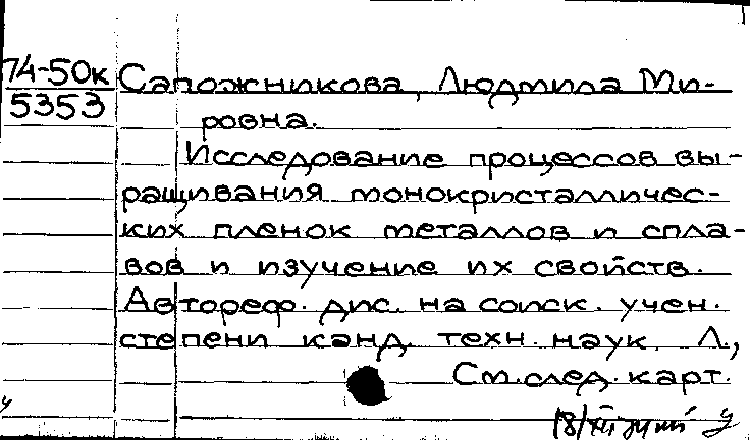 74-50к
5353
Сапожникова, Людмила Ми-
ровна.
Исследование процессов вы-
ращивания монокристалличес-
ких пленок металлов и спла-
вов и изучение их свойств.
Автореф. дис. на соиск. учен.
степени канд. техн. наук. Л.,
См. след. карт.